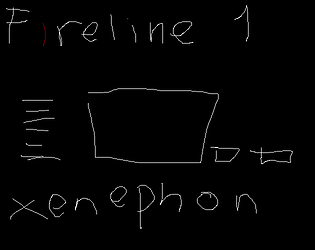 Fireline 1
xenephon